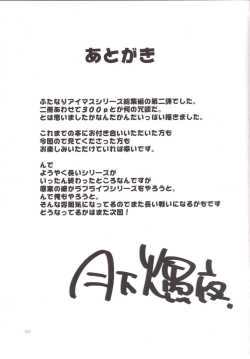 あとがき
ふたなりアイマスシリーズ総集編の第二弾でした。
二冊あわせて300pとか何の冗談だ。
とは思いましたがなんだかんだいっぱい描きました。
これまでの本にお付き合いいただいた方も
今回ので見てくださった方も
お楽しみいただけていれば幸いです。
んで
ようやく長いシリーズが
いったん終わったところなんですが
原案の頃からラブライブシリーズもやろうと、
んで俺もやろうと。
そんな雰囲気になってるのでまた長い戦いになるかもです
どうなってるかはまた次回!
月下